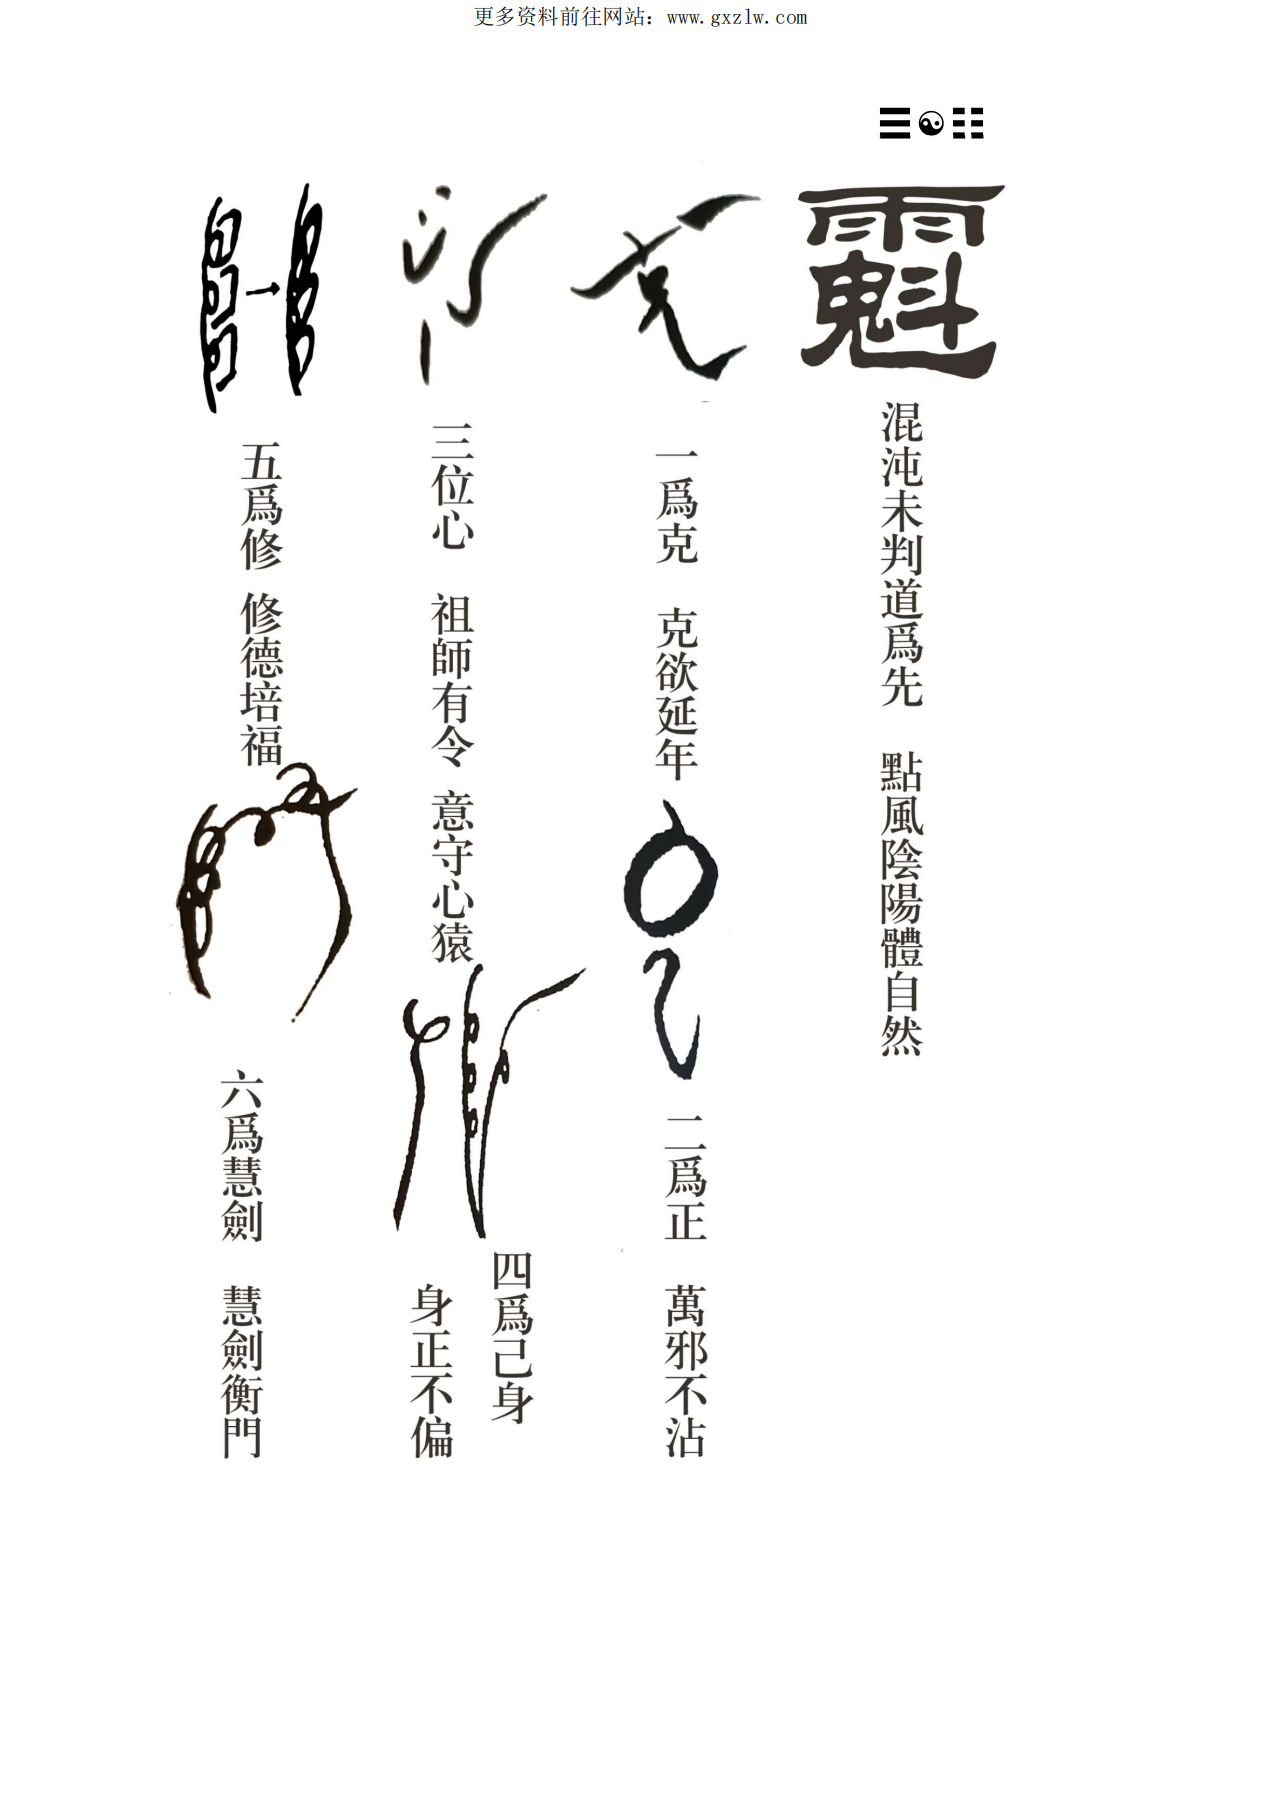 更多资料前往网站：www.gxzlw.com
混沌未判道爲先　點風陰陽體自然
一爲克　克欲延年
二爲正　萬邪不沾
三位心　祖師有令　意守心猿
四爲己身
身正不偏
五爲修　修德培福
六爲慧劍　慧劍衡門